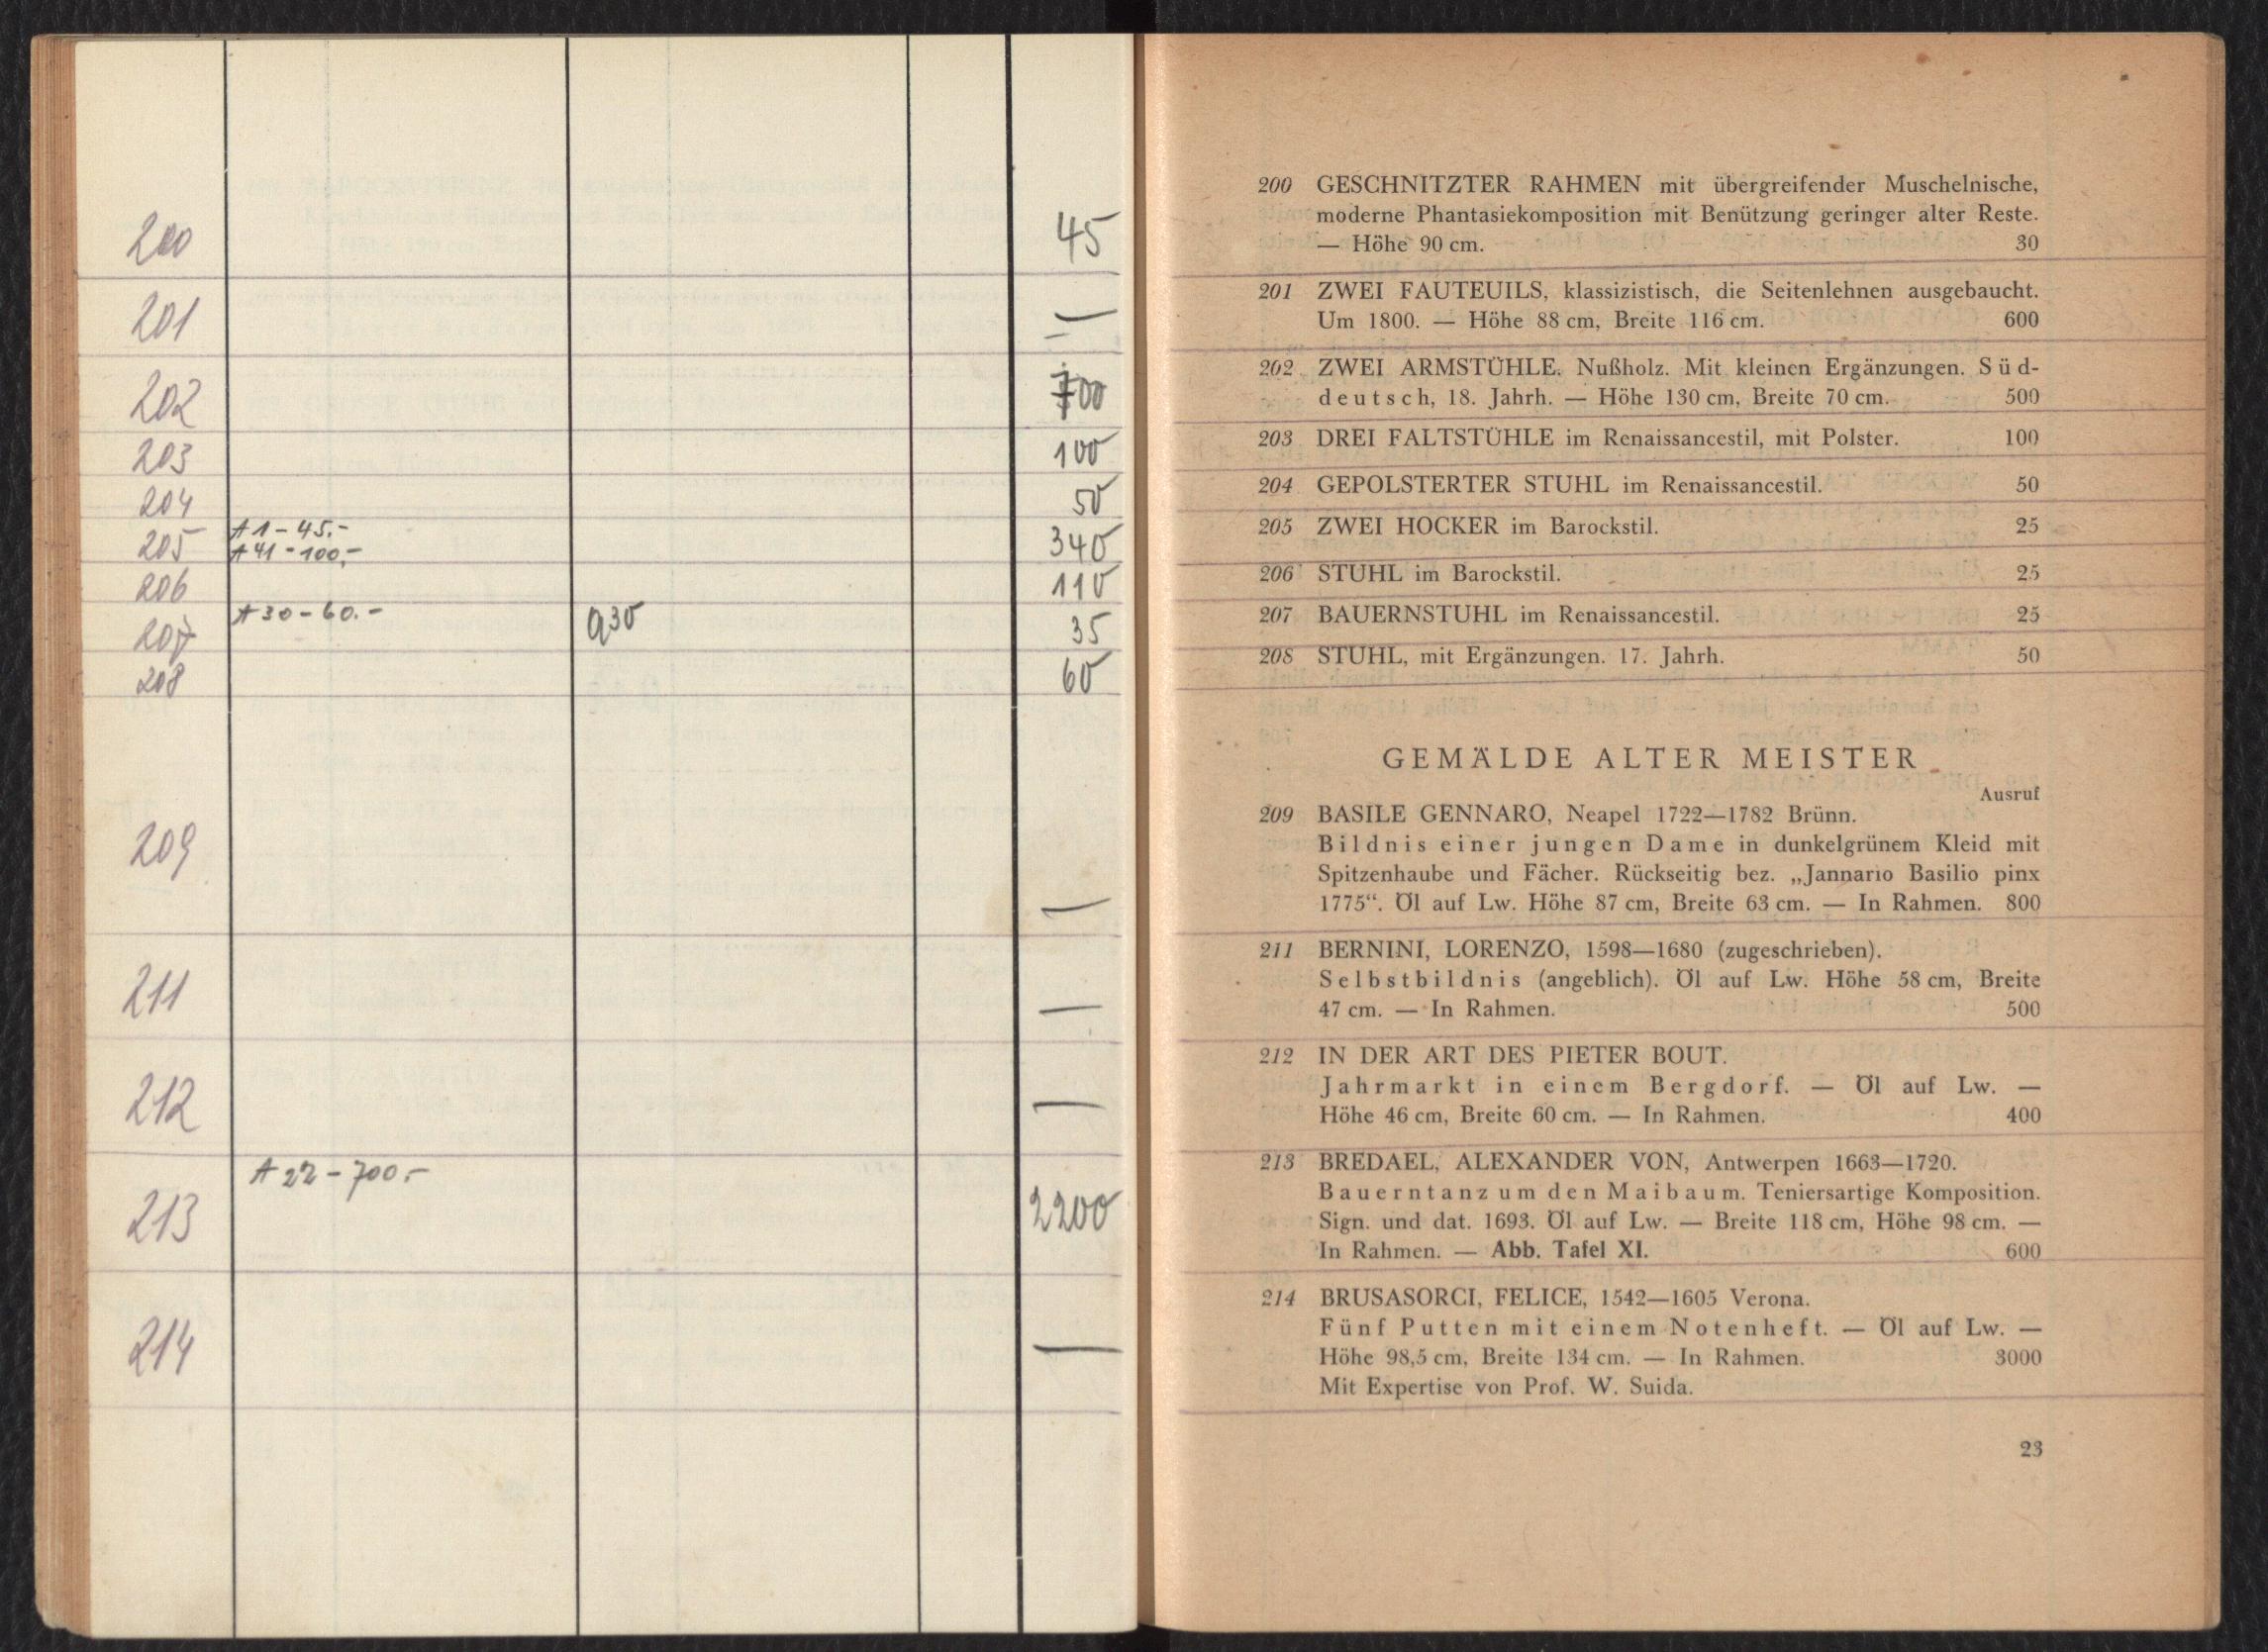 200 45
201 —
202 700
203 100
204 50
A 1 - 45.-
205 A 41 - 100,- 340
206 110
A 30 - 60.-
207 a30 35
208 60
209 —
211 —
212 —
A 22 - 700.-
213 2200
214 —
200 GESCHNITZTER RAHMEN mit übergreifender Muschelnische,
moderne Phantasiekomposition mit Benützung geringer alter Reste.
— Höhe 90 cm. 30
201 ZWEI FAUTEUILS, klassizistisch, die Seitenlehnen ausgebaucht.
Um 1800. — Höhe 88 cm, Breite 116 cm. 600
202 ZWEI ARMSTÜHLE. Nußholz. Mit kleinen Ergänzungen. Süd-
deutsch, 18. Jahrh. — Höhe 130 cm, Breite 70 cm. 500
203 DREI FALTSTÜHLE im Renaissancestil, mit Polster. 100
204 GEPOLSTERTER STUHL im Renaissancestil. 50
205 ZWEI HOCKER im Barockstil. 25
206 STUHL im Barockstil. 25
207 BAUERNSTUHL im Renaissancestil. 25
208 STUHL, mit Ergänzungen. 17. Jahrh. 50
GEMÄLDE ALTER MEISTER
Ausruf
209 BASILE GENNARO, Neapel 1722—1782 Brünn.
Bildnis einer jungen Dame in dunkelgrünem Kleid mit
Spitzenhaube und Fächer. Rückseitig bez. „Jannario Basilio pinx
1775“. Öl auf Lw. Höhe 87 cm, Breite 63 cm. — In Rahmen. 800
211 BERNINI, LORENZO, 1598—1680 (zugeschrieben).
Selbstbildnis (angeblich). Öl auf Lw. Höhe 58 cm, Breite
47 cm. — In Rahmen. 500
212 IN DER ART DES PIETER BOUT.
Jahrmarkt in einem Bergdorf. — Öl auf Lw. —
Höhe 46 cm, Breite 60 cm. — In Rahmen. 400
213 BREDAEL, ALEXANDER VON, Antwerpen 1663—1720.
Bauerntanz um den Maibaum. Teniersartige Komposition.
Sign. und dat. 1693. Öl auf Lw. — Breite 118 cm, Höhe 98 cm. —
In Rahmen. — Abb. Tafel XI. 600
214 BRUSASORCI, FELICE, 1542—1605 Verona.
Fünf Putten mit einem Notenheft. — Öl auf Lw. —
Höhe 98,5 cm, Breite 134 cm. — In Rahmen. 3000
Mit Expertise von Prof. W. Suida.
23